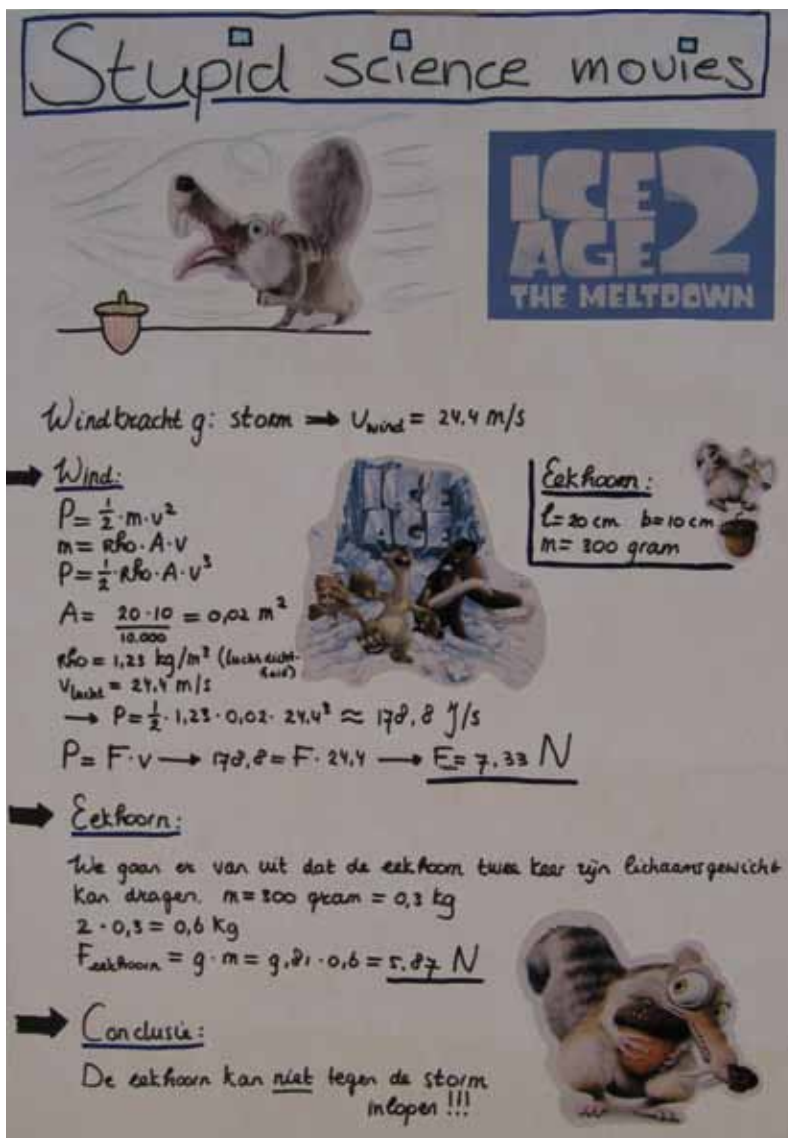 Stupid science movies
ICE
AGE 2
THE MELTDOWN
Windkracht 9: storm → Vwind = 24,4 m/s
Wind:
P = ½ · m · v²
m = Rho · A · v
P = ½ · Rho · A · v³
A = 20 · 10 / 10.000 = 0,02 m²
Rho = 1,23 kg/m³ (luchtdicht-
heid)
Vlucht = 24,4 m/s
→ P = ½ · 1,23 · 0,02 · 24,4³ ≈ 178,8 J/s
P = F · v → 178,8 = F · 24,4 → F = 7,33 N
Eekhoorn:
l = 20 cm b = 10 cm
m = 300 gram
ICE
AGE
Eekhoorn:
We gaan er van uit dat de eekhoorn twee keer zijn lichaamsgewicht
kan dragen. m = 300 gram = 0,3 kg
2 · 0,3 = 0,6 kg
Feekhoorn = g · m = 9,81 · 0,6 = 5,87 N
Conclusie:
De eekhoorn kan niet tegen de storm
inlopen !!!